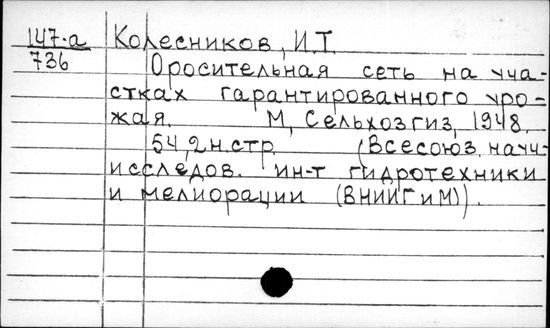 147-а Колесников, И.Т.
736
Оросительная сеть на уча-
стках гарантированного уро-
жая. М, Сельхозгиз, 1948.
54,2н.стр. (Всесоюз. науч-
исследов. ин-т гидротехники
и мелиорации (ВНИИГиМ)).